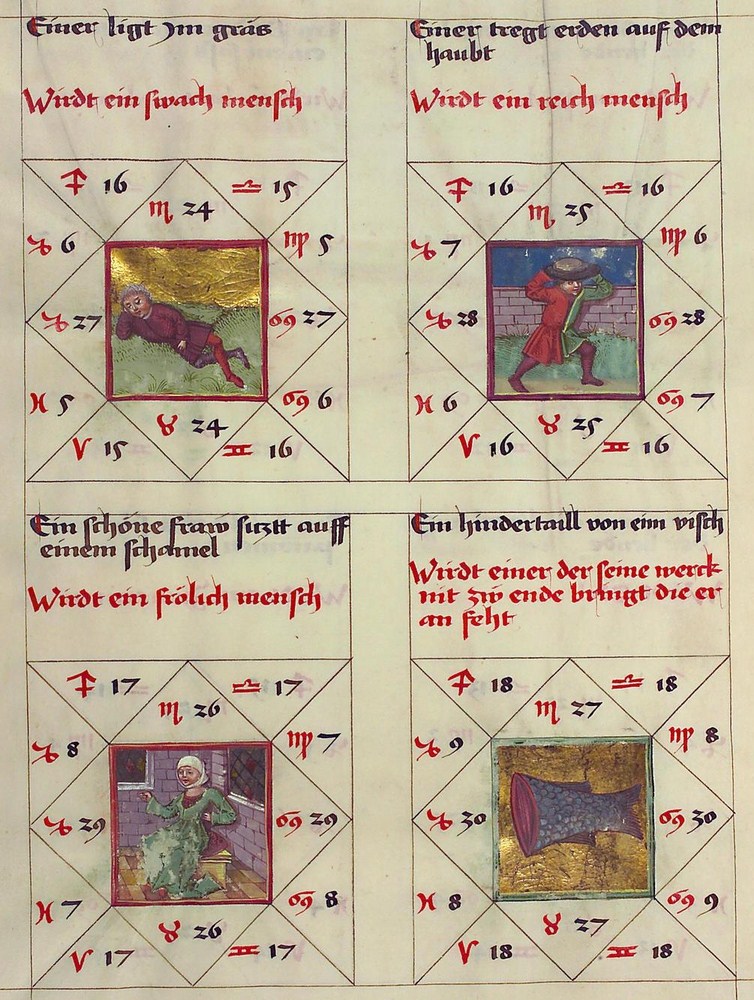 Einer ligt Jm gräs
Wirdt ein swach mensch
♐ 16 ♎ 15
♏ 24
♑ 6 ♍ 5
♑ 27 ♋ 27
♓ 5 ♋ 6
♉ 24
♈ 15 ♊ 16
Einer tregt erden auf dem
haubt
Wirdt ein reich mensch
♐ 16 ♎ 16
♏ 25
♑ 7 ♍ 6
♑ 28 ♋ 28
♓ 6 ♋ 7
♉ 25
♈ 16 ♊ 16
Ein schöne fraw sicztt auff
einem schamel
Wirdt ein frölich mensch
♐ 17 ♎ 17
♏ 26
♑ 8 ♍ 7
♑ 29 ♋ 29
♓ 7 ♋ 8
♉ 26
♈ 17 ♊ 17
Ein hindertaill von eim visch
Wirdt einer der seine werck
nit zw ende bringt die er
an feht
♐ 18 ♎ 18
♏ 27
♑ 9 ♍ 8
♑ 30 ♋ 30
♓ 8 ♋ 9
♉ 27
♈ 18 ♊ 18